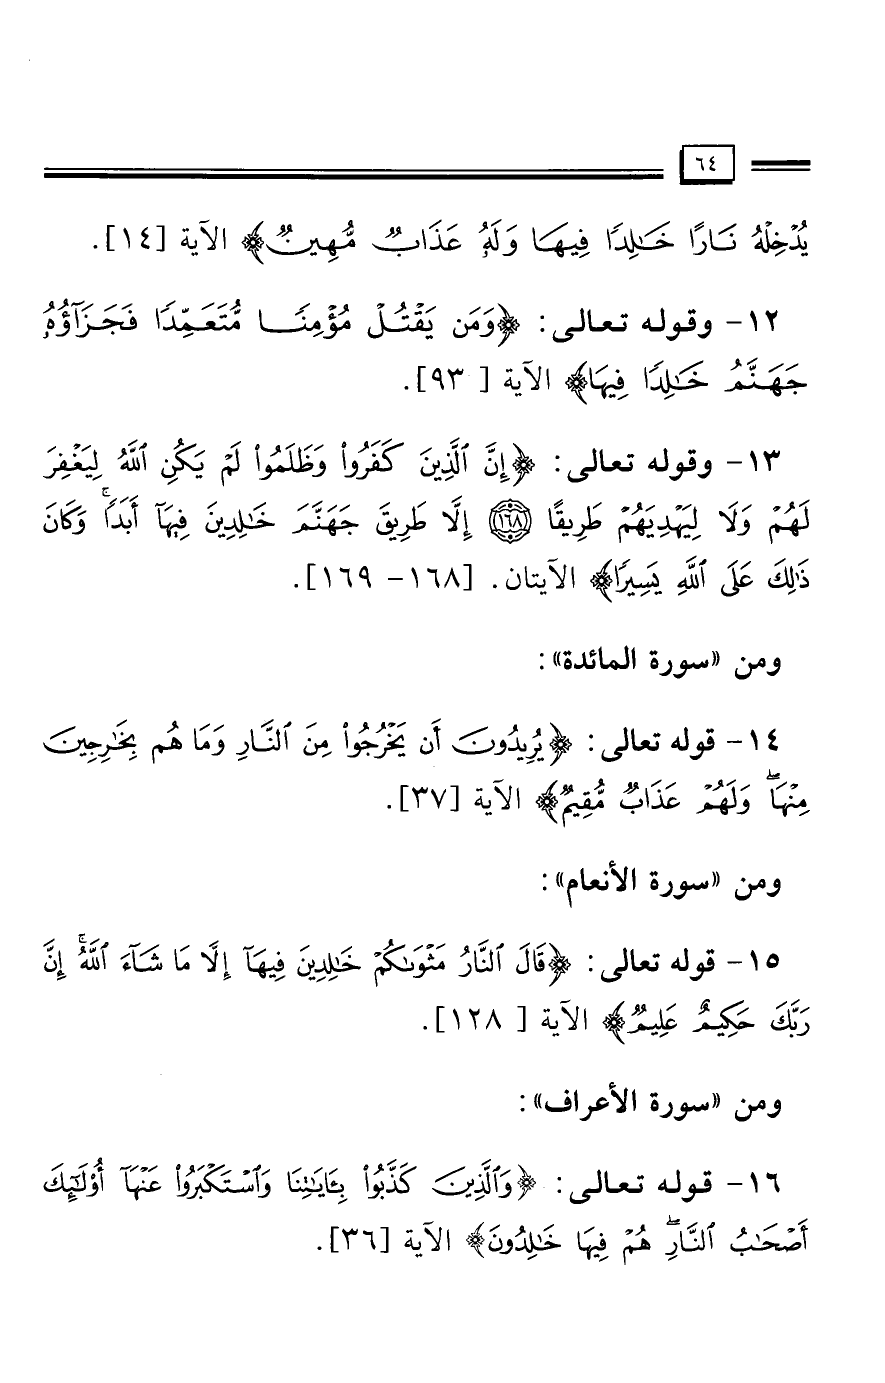 ٦٤
يُدْخِلْهُ نَارًا خَٰلِدًا فِيهَا وَلَهُۥ عَذَابٌ مُّهِينٌ﴾ الآية [١٤].
١٢- وقوله تعالى: ﴿وَمَن يَقْتُلْ مُؤْمِنًا مُّتَعَمِّدًا فَجَزَآؤُهُۥ
جَهَنَّمُ خَٰلِدًا فِيهَا﴾ الآية [ ٩٣].
١٣- وقوله تعالى: ﴿إِنَّ ٱلَّذِينَ كَفَرُوا۟ وَظَلَمُوا۟ لَمْ يَكُنِ ٱللَّهُ لِيَغْفِرَ
لَهُمْ وَلَا لِيَهْدِيَهُمْ طَرِيقًا ۝١٦٨ إِلَّا طَرِيقَ جَهَنَّمَ خَٰلِدِينَ فِيهَآ أَبَدًا ۚ وَكَانَ
ذَٰلِكَ عَلَى ٱللَّهِ يَسِيرًا﴾ الآيتان. [١٦٨- ١٦٩].
ومن «سورة المائدة»:
١٤- قوله تعالى: ﴿يُرِيدُونَ أَن يَخْرُجُوا۟ مِنَ ٱلنَّارِ وَمَا هُم بِخَٰرِجِينَ
مِنْهَا ۖ وَلَهُمْ عَذَابٌ مُّقِيمٌ﴾ الآية [٣٧].
ومن «سورة الأنعام»:
١٥- قوله تعالى: ﴿قَالَ ٱلنَّارُ مَثْوَىٰكُمْ خَٰلِدِينَ فِيهَآ إِلَّا مَا شَآءَ ٱللَّهُ ۚ إِنَّ
رَبَّكَ حَكِيمٌ عَلِيمٌ﴾ الآية [ ١٢٨].
ومن «سورة الأعراف»:
١٦- قوله تعالى: ﴿وَٱلَّذِينَ كَذَّبُوا۟ بِـَٔايَٰتِنَا وَٱسْتَكْبَرُوا۟ عَنْهَآ أُو۟لَٰٓئِكَ
أَصْحَٰبُ ٱلنَّارِ ۖ هُمْ فِيهَا خَٰلِدُونَ﴾ الآية [٣٦].